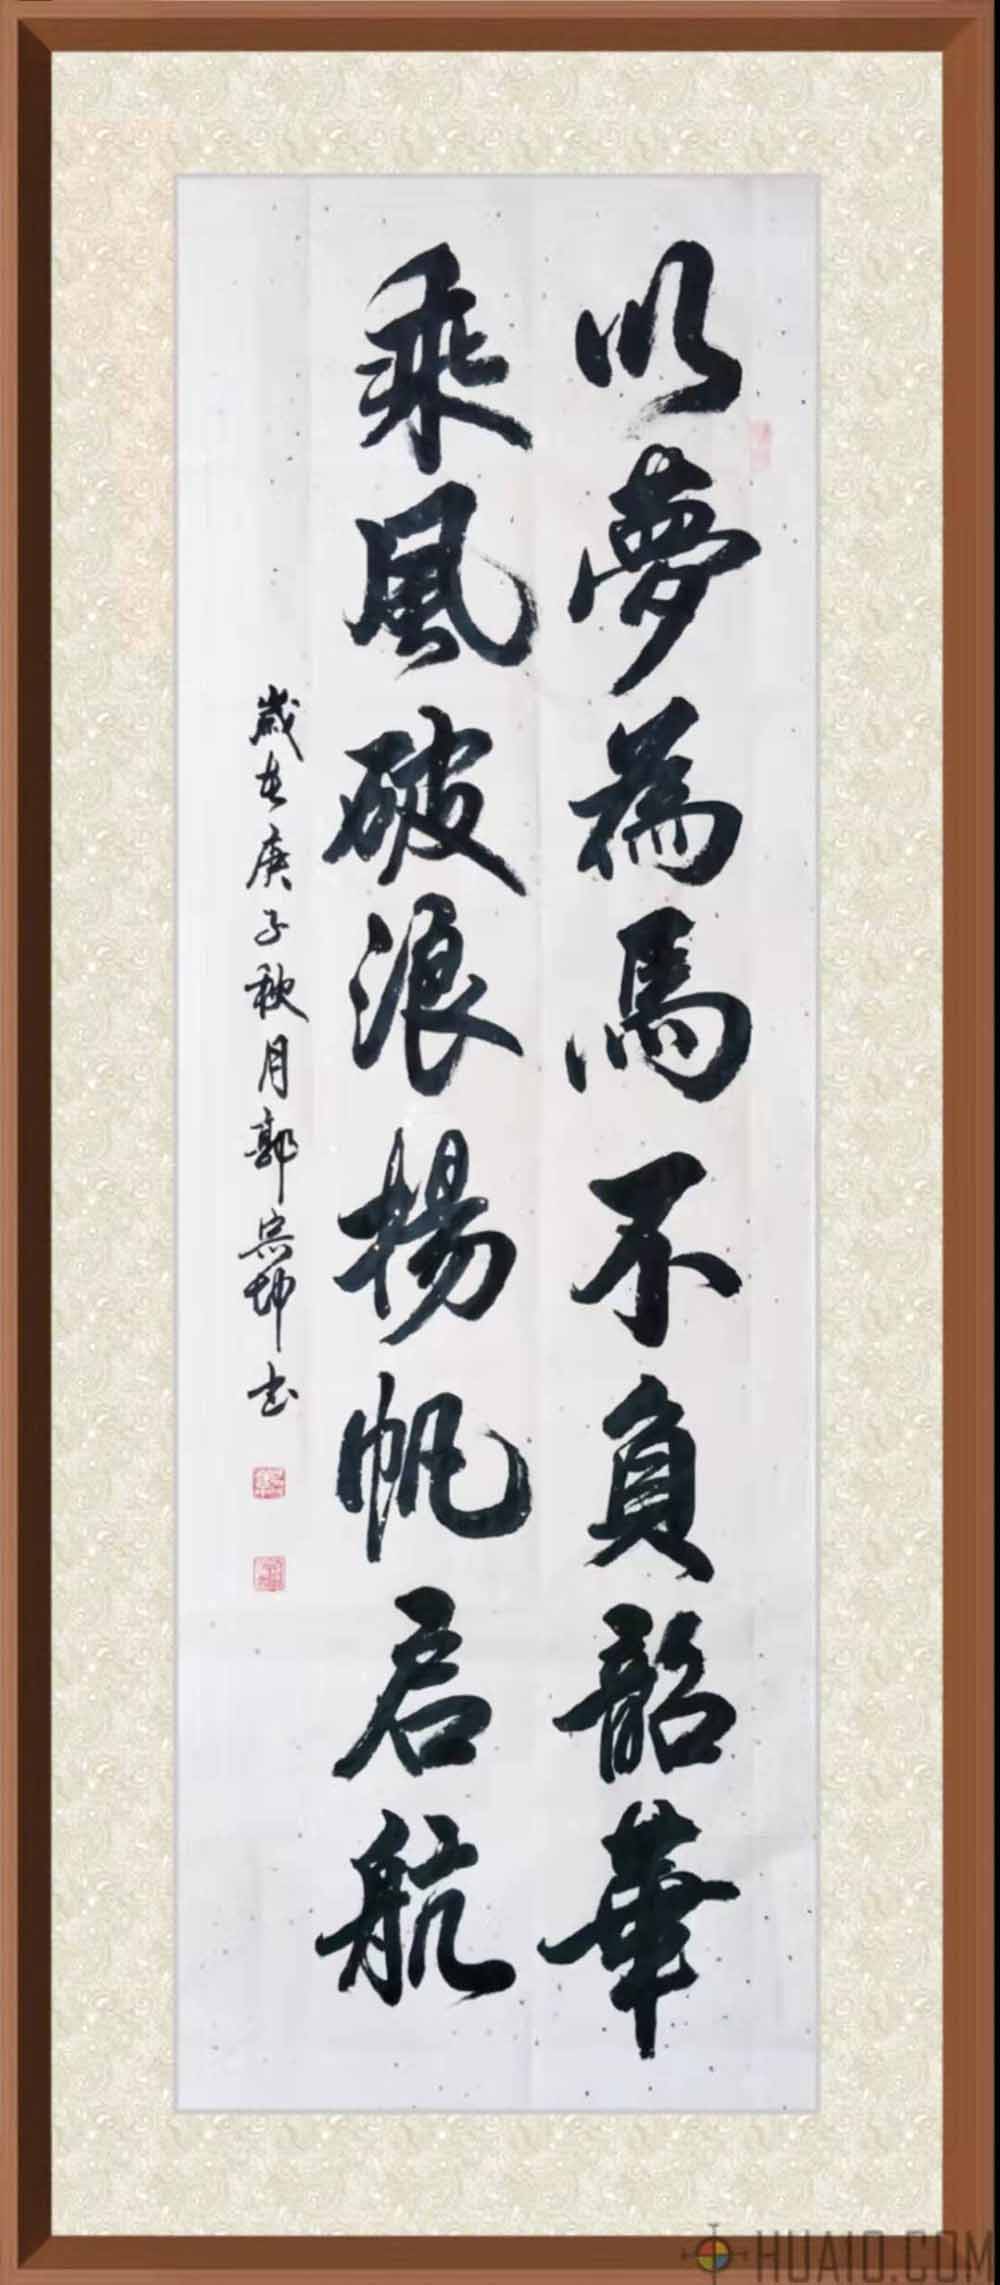 以夢為馬不負韶華
乘風破浪揚帆启航
歲在庚子秋月郭宗坤书
HUA10.COM